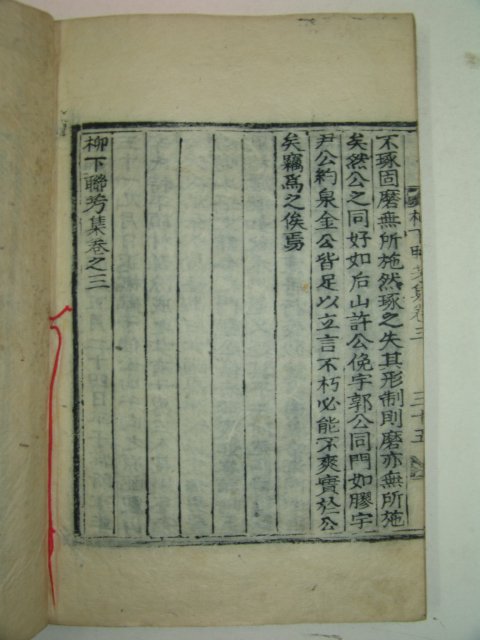 不琢固磨無所施然琢之失其形制則磨亦無所施
矣然公之同好如后山許公俛宇郭公同門如膠宇
尹公約泉金公皆足以立言不朽必能不爽實於公
矣竊爲之俟焉
柳下聯芳集卷之三
柳下聯芳集卷三 三十五